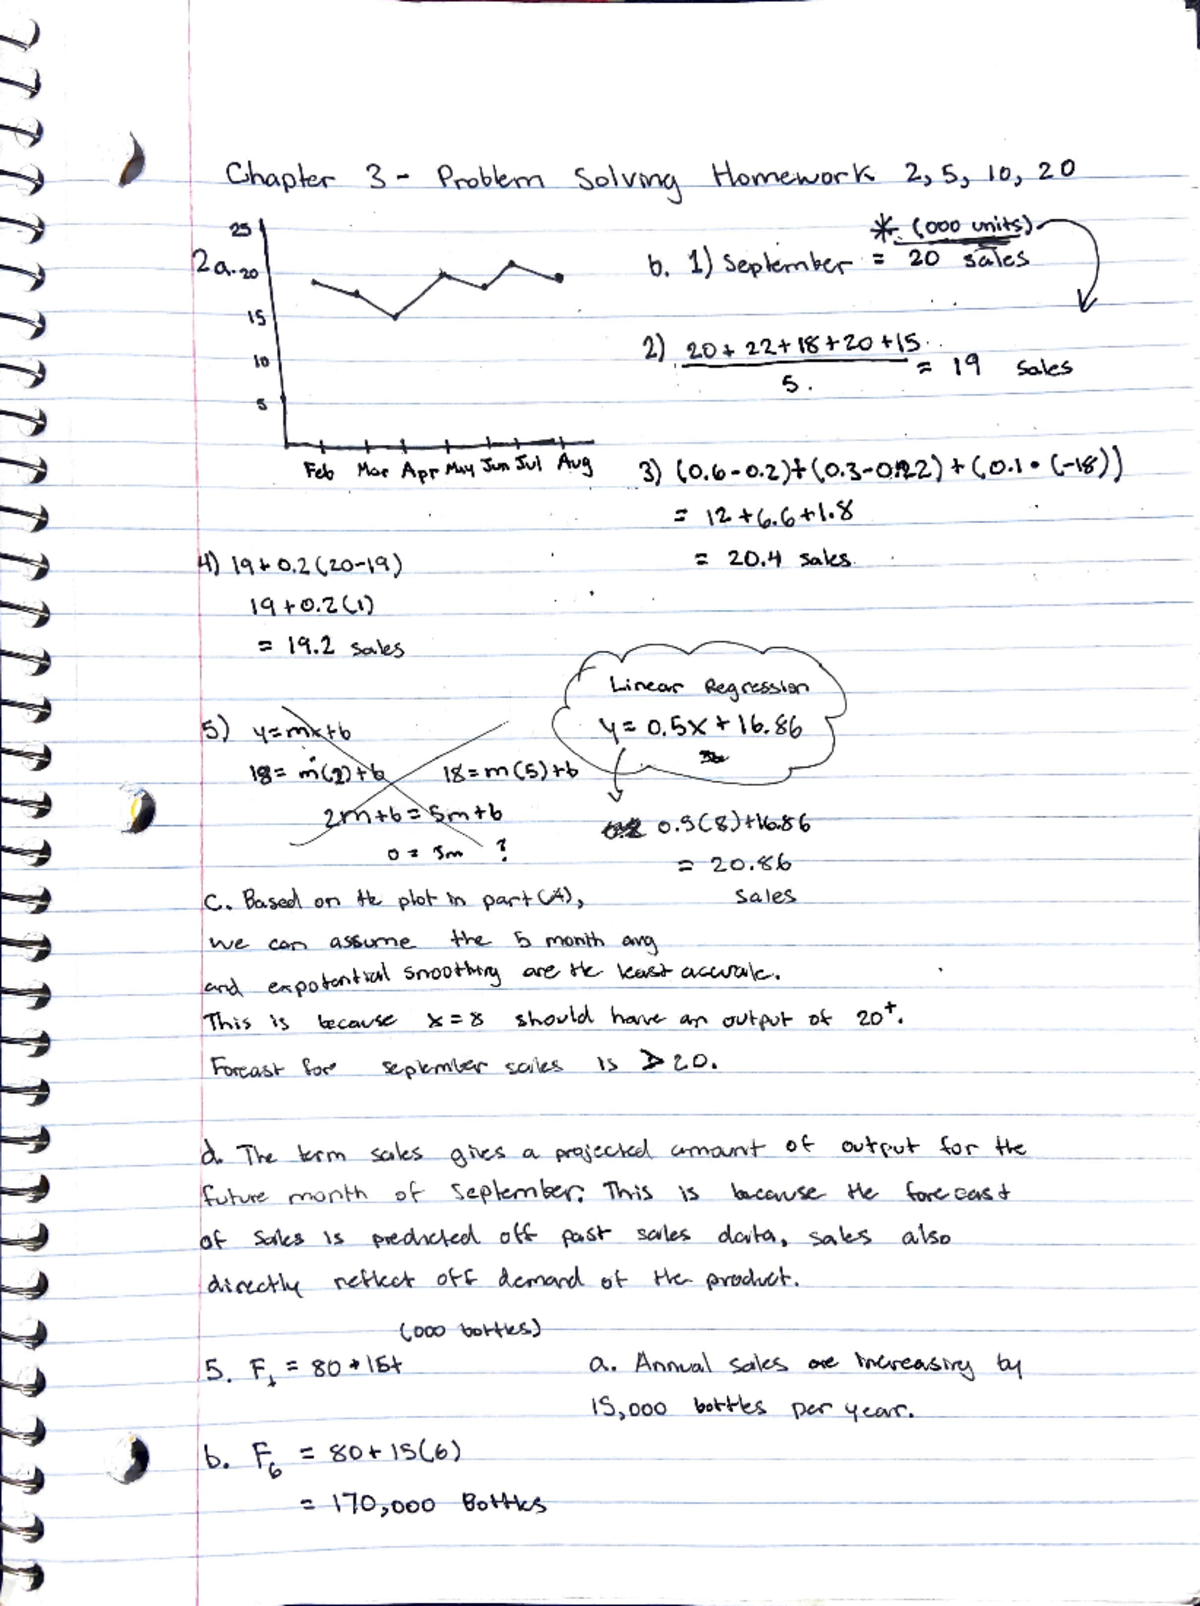 Chapter 3 - Problem Solving Homework 2, 5, 10, 20
2a.
25
20
15
10
5
Feb Mar Apr May Jun Jul Aug
* (000 units)
b. 1) September = 20 sales
2) 20 + 22 + 18 + 20 + 15
5.
= 19 sales
3) (0.6 - 0.2) + (0.3 - 22) + (0.1 • (-18))
= 12 + 6.6 + 1.8
= 20.4 sales
4) 19 + 0.2 (20-19)
19 + 0.2 (1)
= 19.2 sales
5) y = mx + b
18 = m(2) + b 18 = m(5) + b
2m + b = 5m + b
0 = 3m ?
Linear Regression
y = 0.5x + 16.86
0.5(8) + 16.86
= 20.86
sales
C. Based on the plot in part (A),
we can assume the 5 month avg
and expotential smoothing are the least accurate.
This is because x = 8 should have an output of 20+.
Forcast for september sales is > 20.
d. The term sales gives a projected amount of output for the
future month of September. This is because the forecast
of sales is predicted off past sales data, sales also
directly reflect off demand of the product.
(000 bottles)
5. Ft = 80 + 15t
a. Annual sales are increasing by
15,000 bottles per year.
b. F6 = 80 + 15(6)
= 170,000 Bottles